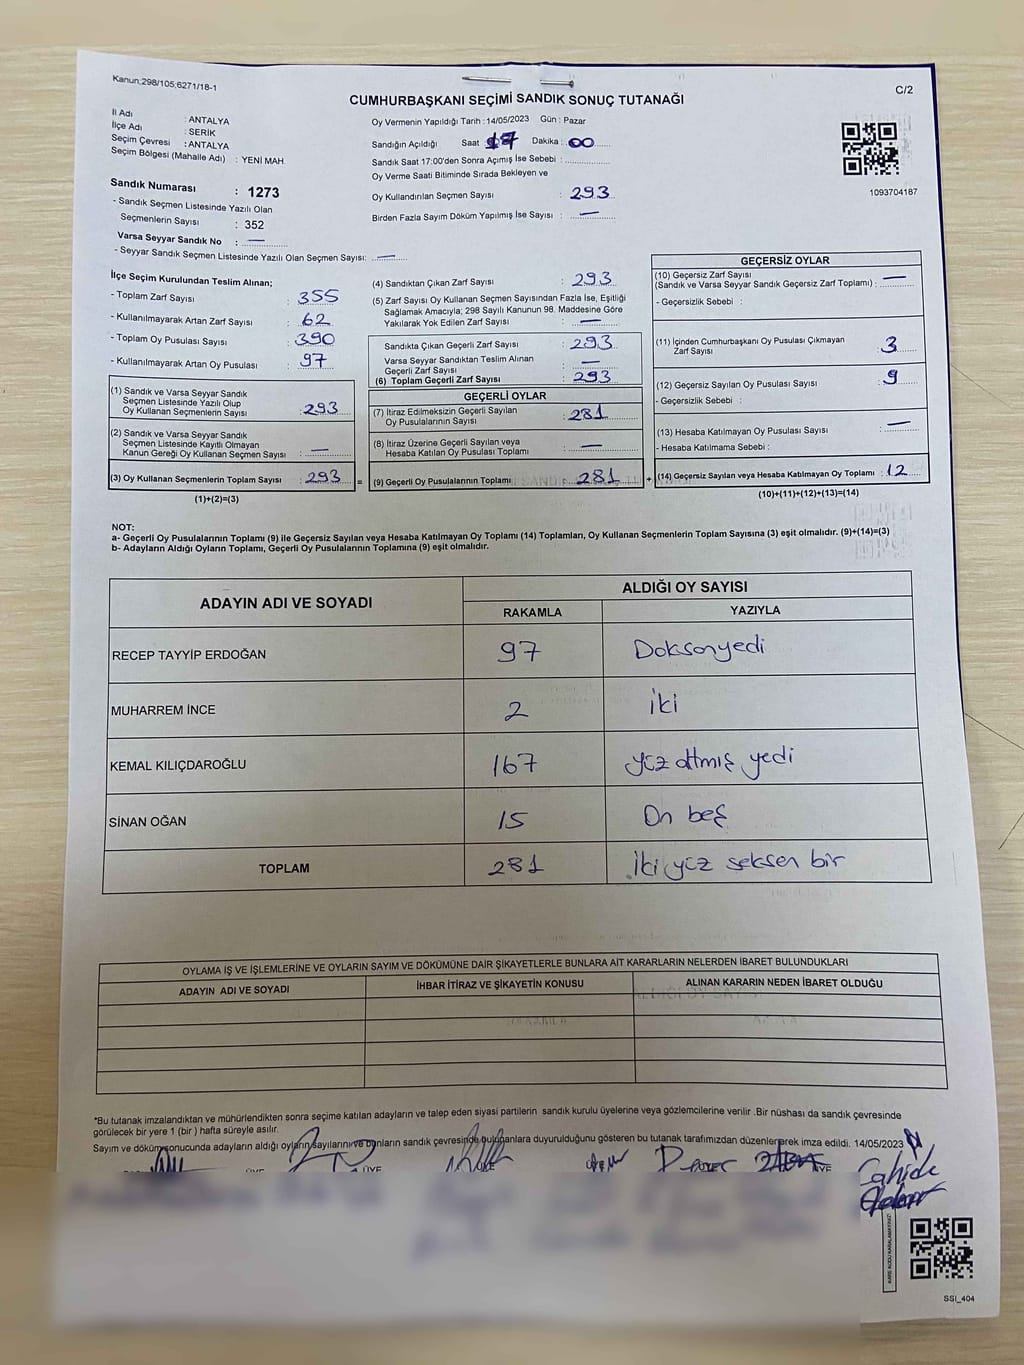 Kanun:298/105;6271/18-1
C/2
CUMHURBAŞKANI SEÇİMİ SANDIK SONUÇ TUTANAĞI
İl Adı : ANTALYA
İlçe Adı : SERİK
Seçim Çevresi : ANTALYA
Seçim Bölgesi (Mahalle Adı) : YENİ MAH.
Sandık Numarası : 1273
- Sandık Seçmen Listesinde Yazılı Olan
Seçmenlerin Sayısı : 352
Varsa Seyyar Sandık No : —
- Seyyar Sandık Seçmen Listesinde Yazılı Olan Seçmen Sayısı: —
Oy Vermenin Yapıldığı Tarih :14/05/2023 Gün : Pazar
Sandığın Açıldığı Saat 17 Dakika : 00
Sandık Saat 17:00'den Sonra Açımış İse Sebebi :
Oy Verme Saati Bitiminde Sırada Bekleyen ve
Oy Kullandırılan Seçmen Sayısı : 293
Birden Fazla Sayım Döküm Yapılmış İse Sayısı : —
1093704187
İlçe Seçim Kurulundan Teslim Alınan;
- Toplam Zarf Sayısı : 355
- Kullanılmayarak Artan Zarf Sayısı : 62
- Toplam Oy Pusulası Sayısı : 390
- Kullanılmayarak Artan Oy Pusulası : 97
(1) Sandık ve Varsa Seyyar Sandık
Seçmen Listesinde Yazılı Olup
Oy Kullanan Seçmenlerin Sayısı : 293
(2) Sandık ve Varsa Seyyar Sandık
Seçmen Listesinde Kayıtlı Olmayan
Kanun Gereği Oy Kullanan Seçmen Sayısı : —
(3) Oy Kullanan Seçmenlerin Toplam Sayısı : 293
(1)+(2)=(3)
(4) Sandıktan Çıkan Zarf Sayısı : 293
(5) Zarf Sayısı Oy Kullanan Seçmen Sayısından Fazla İse, Eşitliği
Sağlamak Amacıyla; 298 Sayılı Kanunun 98. Maddesine Göre
Yakılarak Yok Edilen Zarf Sayısı : —
Sandıkta Çıkan Geçerli Zarf Sayısı : 293
Varsa Seyyar Sandıktan Teslim Alınan
Geçerli Zarf Sayısı : —
(6) Toplam Geçerli Zarf Sayısı : 293
GEÇERLİ OYLAR
(7) İtiraz Edilmeksizin Geçerli Sayılan
Oy Pusulalarının Sayısı : 281
(8) İtiraz Üzerine Geçerli Sayılan veya
Hesaba Katılan Oy Pusulası Toplamı : —
= (9) Geçerli Oy Pusulalarının Toplamı : 281
GEÇERSİZ OYLAR
(10) Geçersiz Zarf Sayısı
(Sandık ve Varsa Seyyar Sandık Geçersiz Zarf Toplamı) : —
- Geçersizlik Sebebi :
(11) İçinden Cumhurbaşkanı Oy Pusulası Çıkmayan
Zarf Sayısı : 3
(12) Geçersiz Sayılan Oy Pusulası Sayısı : 9
- Geçersizlik Sebebi :
(13) Hesaba Katılmayan Oy Pusulası Sayısı : —
- Hesaba Katılmama Sebebi :
+ (14) Geçersiz Sayılan veya Hesaba Katılmayan Oy Toplamı : 12
(10)+(11)+(12)+(13)=(14)
NOT:
a- Geçerli Oy Pusulalarının Toplamı (9) ile Geçersiz Sayılan veya Hesaba Katılmayan Oy Toplamı (14) Toplamları, Oy Kullanan Seçmenlerin Toplam Sayısına (3) eşit olmalıdır. (9)+(14)=(3)
b- Adayların Aldığı Oyların Toplamı, Geçerli Oy Pusulalarının Toplamına (9) eşit olmalıdır.
ADAYIN ADI VE SOYADI ALDIĞI OY SAYISI
RAKAMLA YAZIYLA
RECEP TAYYİP ERDOĞAN 97 Doksanyedi
MUHARREM İNCE 2 iki
KEMAL KILIÇDAROĞLU 167 yüz altmış yedi
SİNAN OĞAN 15 On beş
TOPLAM 281 İki yüz seksen bir
OYLAMA İŞ VE İŞLEMLERİNE VE OYLARIN SAYIM VE DÖKÜMÜNE DAİR ŞİKAYETLERLE BUNLARA AİT KARARLARIN NELERDEN İBARET BULUNDUKLARI
ADAYIN ADI VE SOYADI İHBAR İTİRAZ VE ŞİKAYETİN KONUSU ALINAN KARARIN NEDEN İBARET OLDUĞU
*Bu tutanak imzalandıktan ve mühürlendikten sonra seçime katılan adayların ve talep eden siyasi partilerin sandık kurulu üyelerine veya gözlemcilerine verilir .Bir nüshası da sandık çevresinde
görülecek bir yere 1 (bir ) hafta süreyle asılır.
Sayım ve döküm sonucunda adayların aldığı oyların/sayılarını ve bunların sandık çevresinde bulunanlara duyurulduğunu gösteren bu tutanak tarafımızdan düzenlenerek imza edildi. 14/05/2023
ÜYE ÜYE ÜYE ÜYE
Cahide
SSİ_404